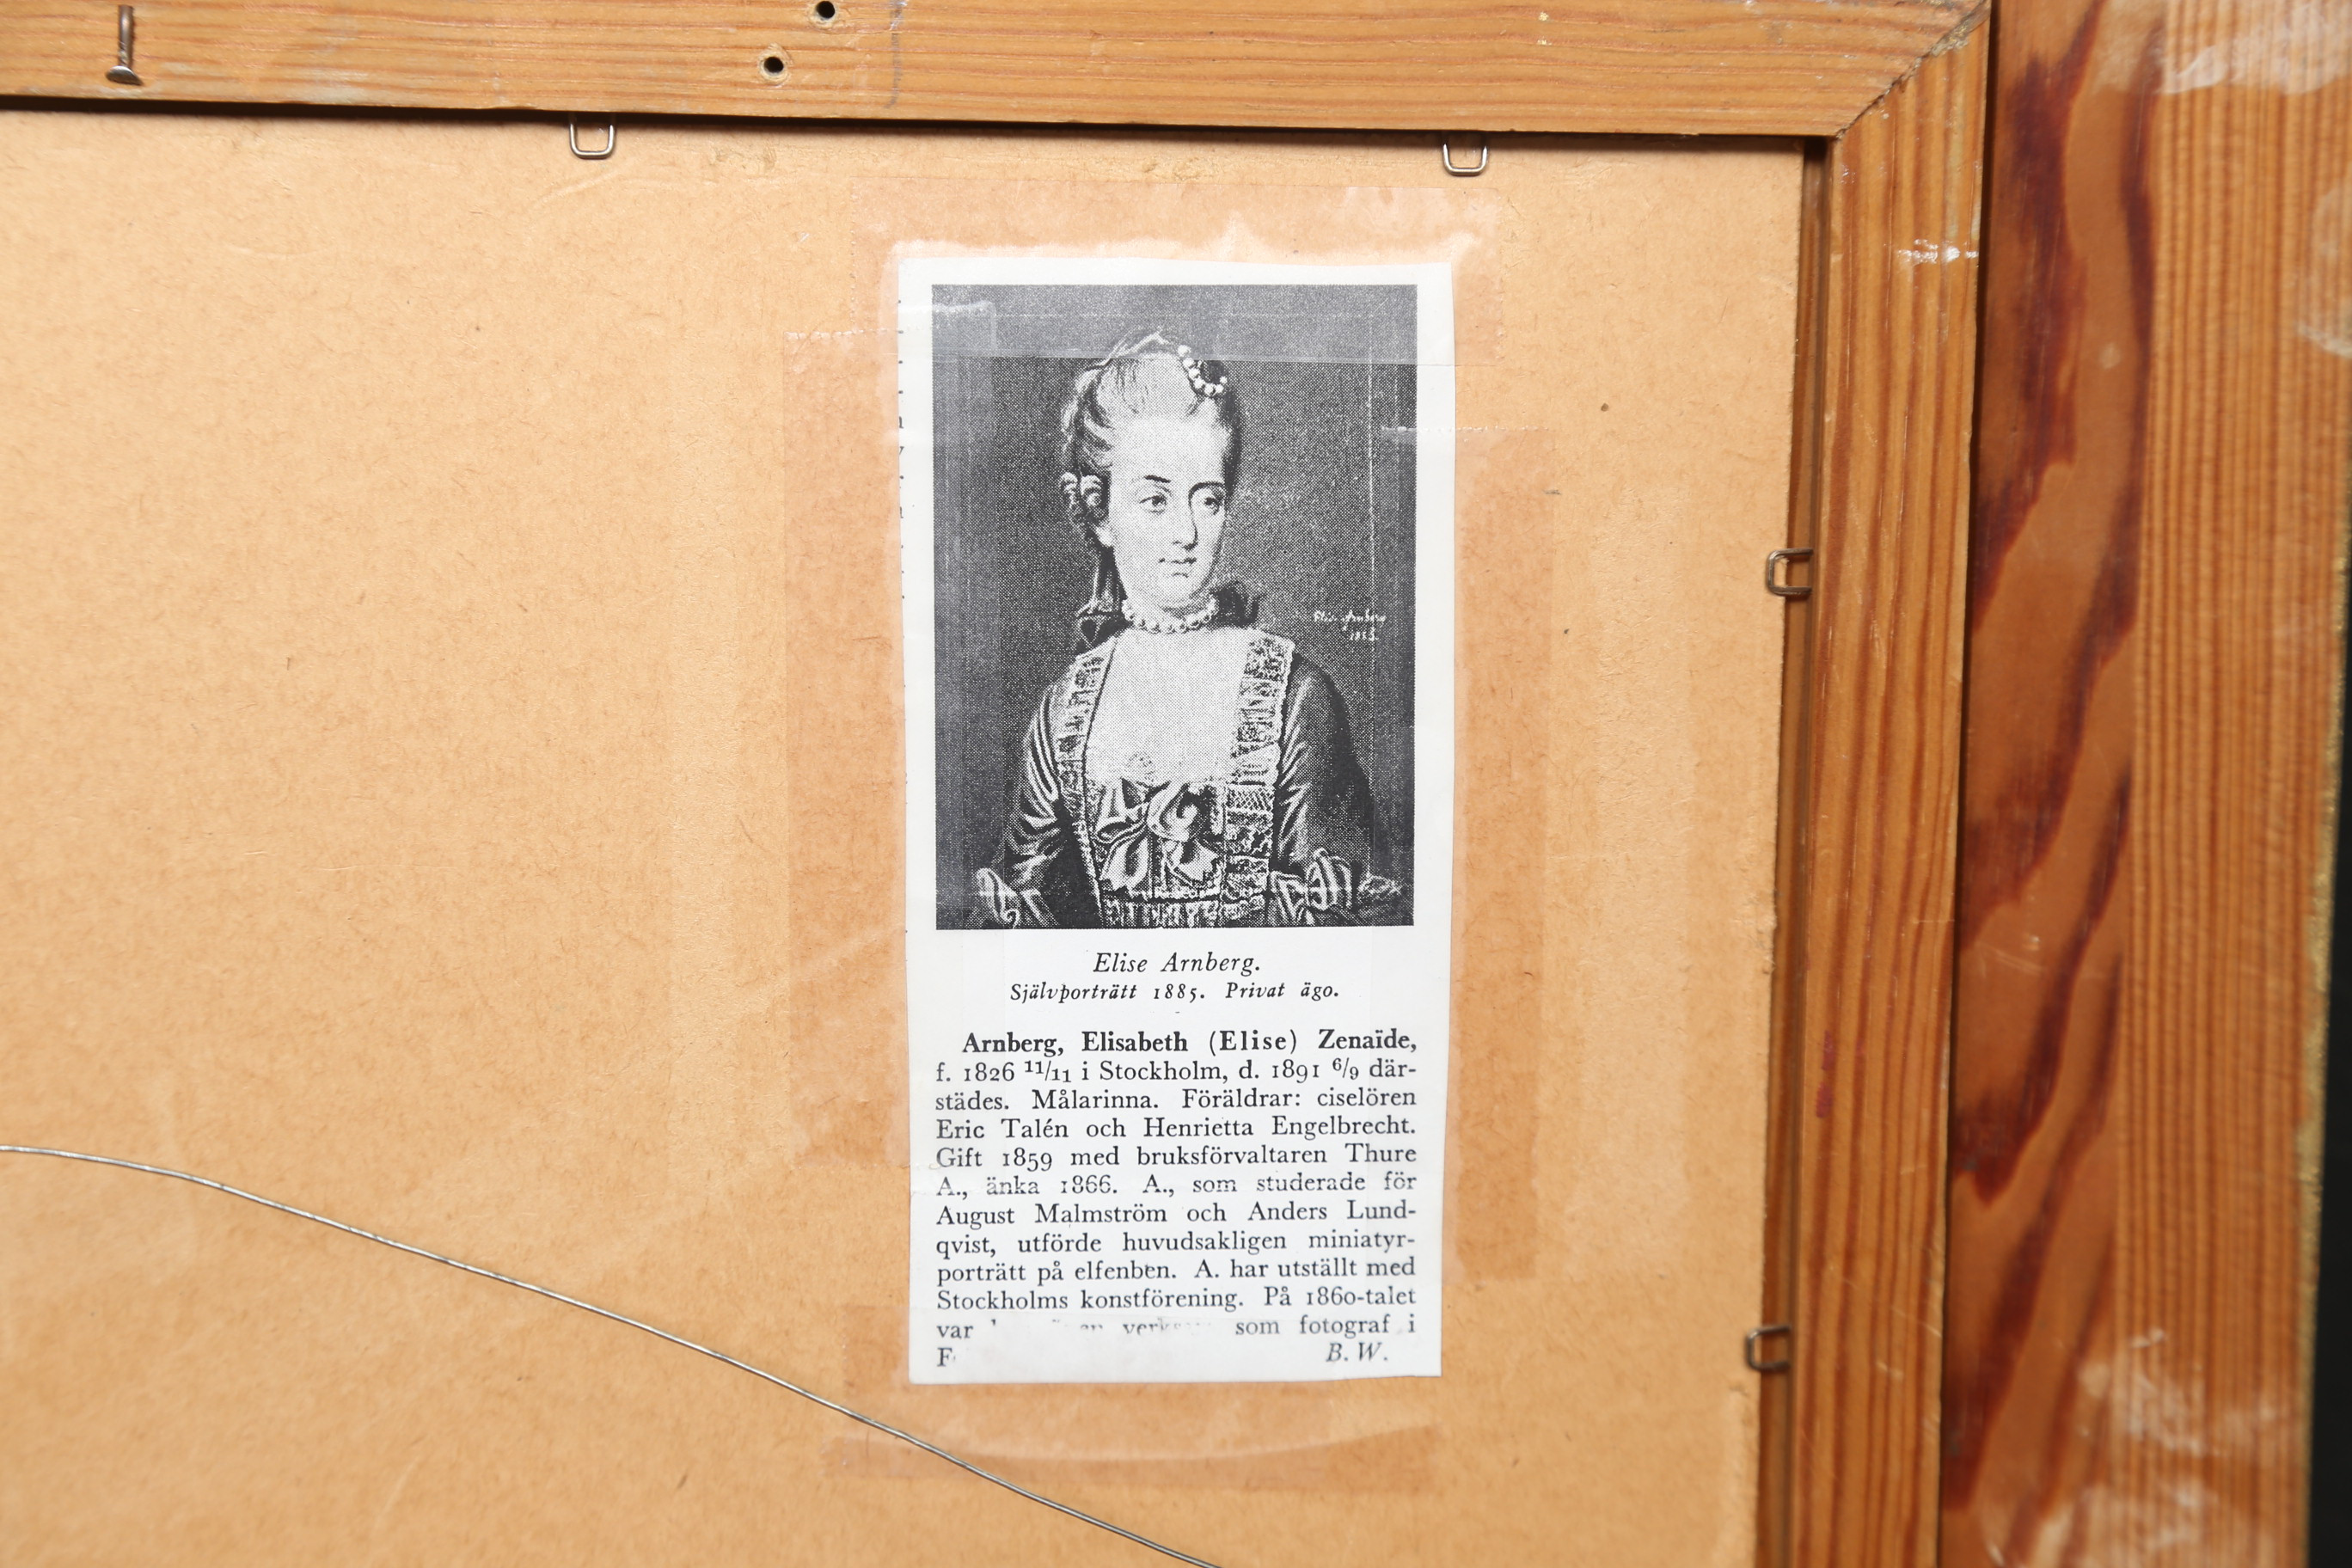 Elise Arnberg
Elise Arnberg.
Självporträtt 1885. Privat ägo.
Arnberg, Elisabeth (Elise) Zenaïde,
f. 1826 11/11 i Stockholm, d. 1891 6/9 där-
städes. Målarinna. Föräldrar: ciselören
Eric Talén och Henrietta Engelbrecht.
Gift 1859 med bruksförvaltaren Thure
A., änka 1866. A., som studerade för
August Malmström och Anders Lund-
qvist, utförde huvudsakligen miniatyr-
porträtt på elfenben. A. har utställt med
Stockholms konstförening. På 1860-talet
var som fotograf i
B. W.